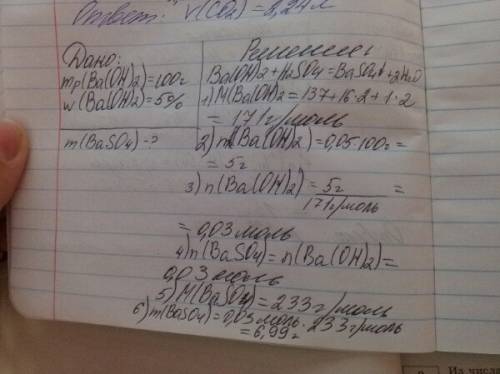 Ответ: V(CO2) = 2,24 л
Дано:
mр(Ba(OH)2)=100г
w(Ba(OH)2)=5%
m(BaSO4)-?
Решение:
Ba(OH)2+H2SO4=BaSO4↓+2H2O
1) M(Ba(OH)2=137+16·2+1·2
=171г/моль
2) m(Ba(OH)2)=0,05·100г=
=5г
3) n(Ba(OH)2)=5г/171г/моль=
=0,03моль
4) n(BaSO4)=n(Ba(OH)2)=
0,03моль
5) M(BaSO4)=233г/моль
6) m(BaSO4)=0,03моль·233г/моль
=6,99г
На